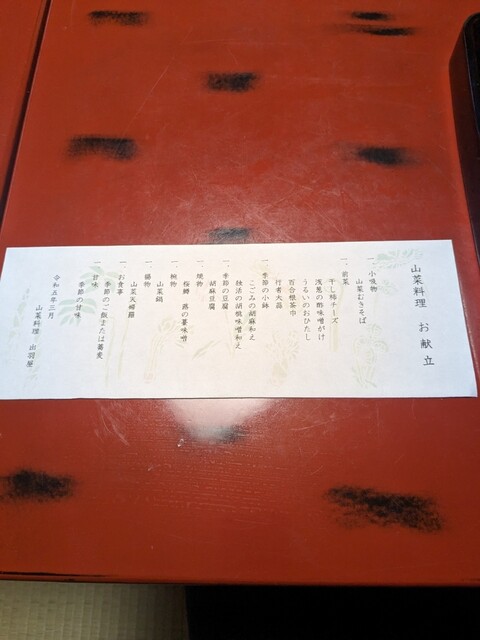 山菜料理 お献立
一、小吸物
山菜おきそば
一、前菜
干し柿チーズ
浅葱の酢味噌がけ
うるいのおひたし
百合根茶巾
行者大蒜
一、季節の小鉢
こごみの胡麻和え
独活の胡桃味噌和え
一、季節の豆腐
胡麻豆腐
一、焼物
桜鱒 蕗の薹味噌
一、椀物
山菜鍋
一、揚物
山菜天婦羅
一、お食事
季節のご飯または蕎麦
一、甘味
季節の甘味
令和五年三月
山菜料理 出羽屋